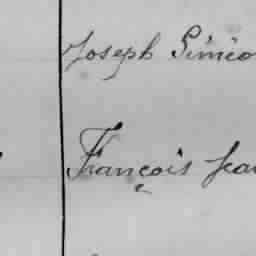 Joseph Siméo
François Jea